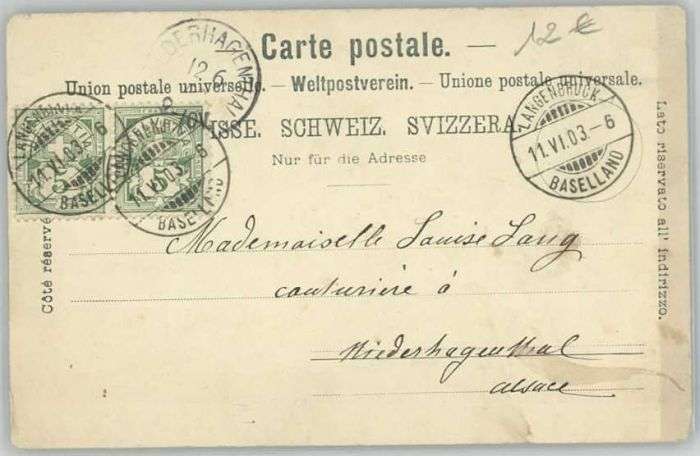 Carte postale. —
12 €
Union postale universelle. — Weltpostverein. — Unione postale universale.
SUISSE. SCHWEIZ. SVIZZERA.
Nur für die Adresse
Côté réservé
Lato riservato all' indirizzo.
12 6
LANGENBRUCK
11.VI.03.–6
BASELLAND
LANGENBRUCK
11.VI.03.–6
BASELLAND
LANGENBRUCK
11.VI.03.–6
BASELLAND
5
5
Mademoiselle Louise Lang
couturière à
Niederhagenthal
alsace